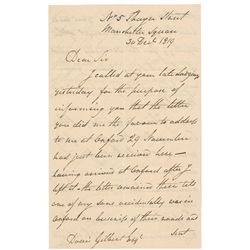 No 5 Thayer Street
Manchester Square
30 Decr 1819
Dear Sir
I called at your late Lodgings
yesterday for the purpose of
informing you that the letter
you did me the favour to address
to me at Oxford 29 November
had just been received here —
having arrived at Oxford after I
left it the letter remained there till
one of my sons accidentally was in
Oxford on business of his
Sent
Davies Gilbert Esqr